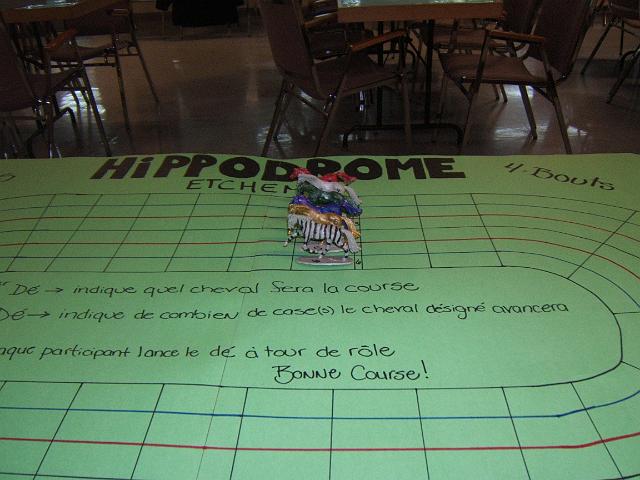 HiPPODROME
ETCHEM
4-Bouts
Dé → indique quel cheval fera la course
Dé → indique de combien de case(s) le cheval désigné avancera
aque participant lance le dé à tour de rôle
Bonne Course!